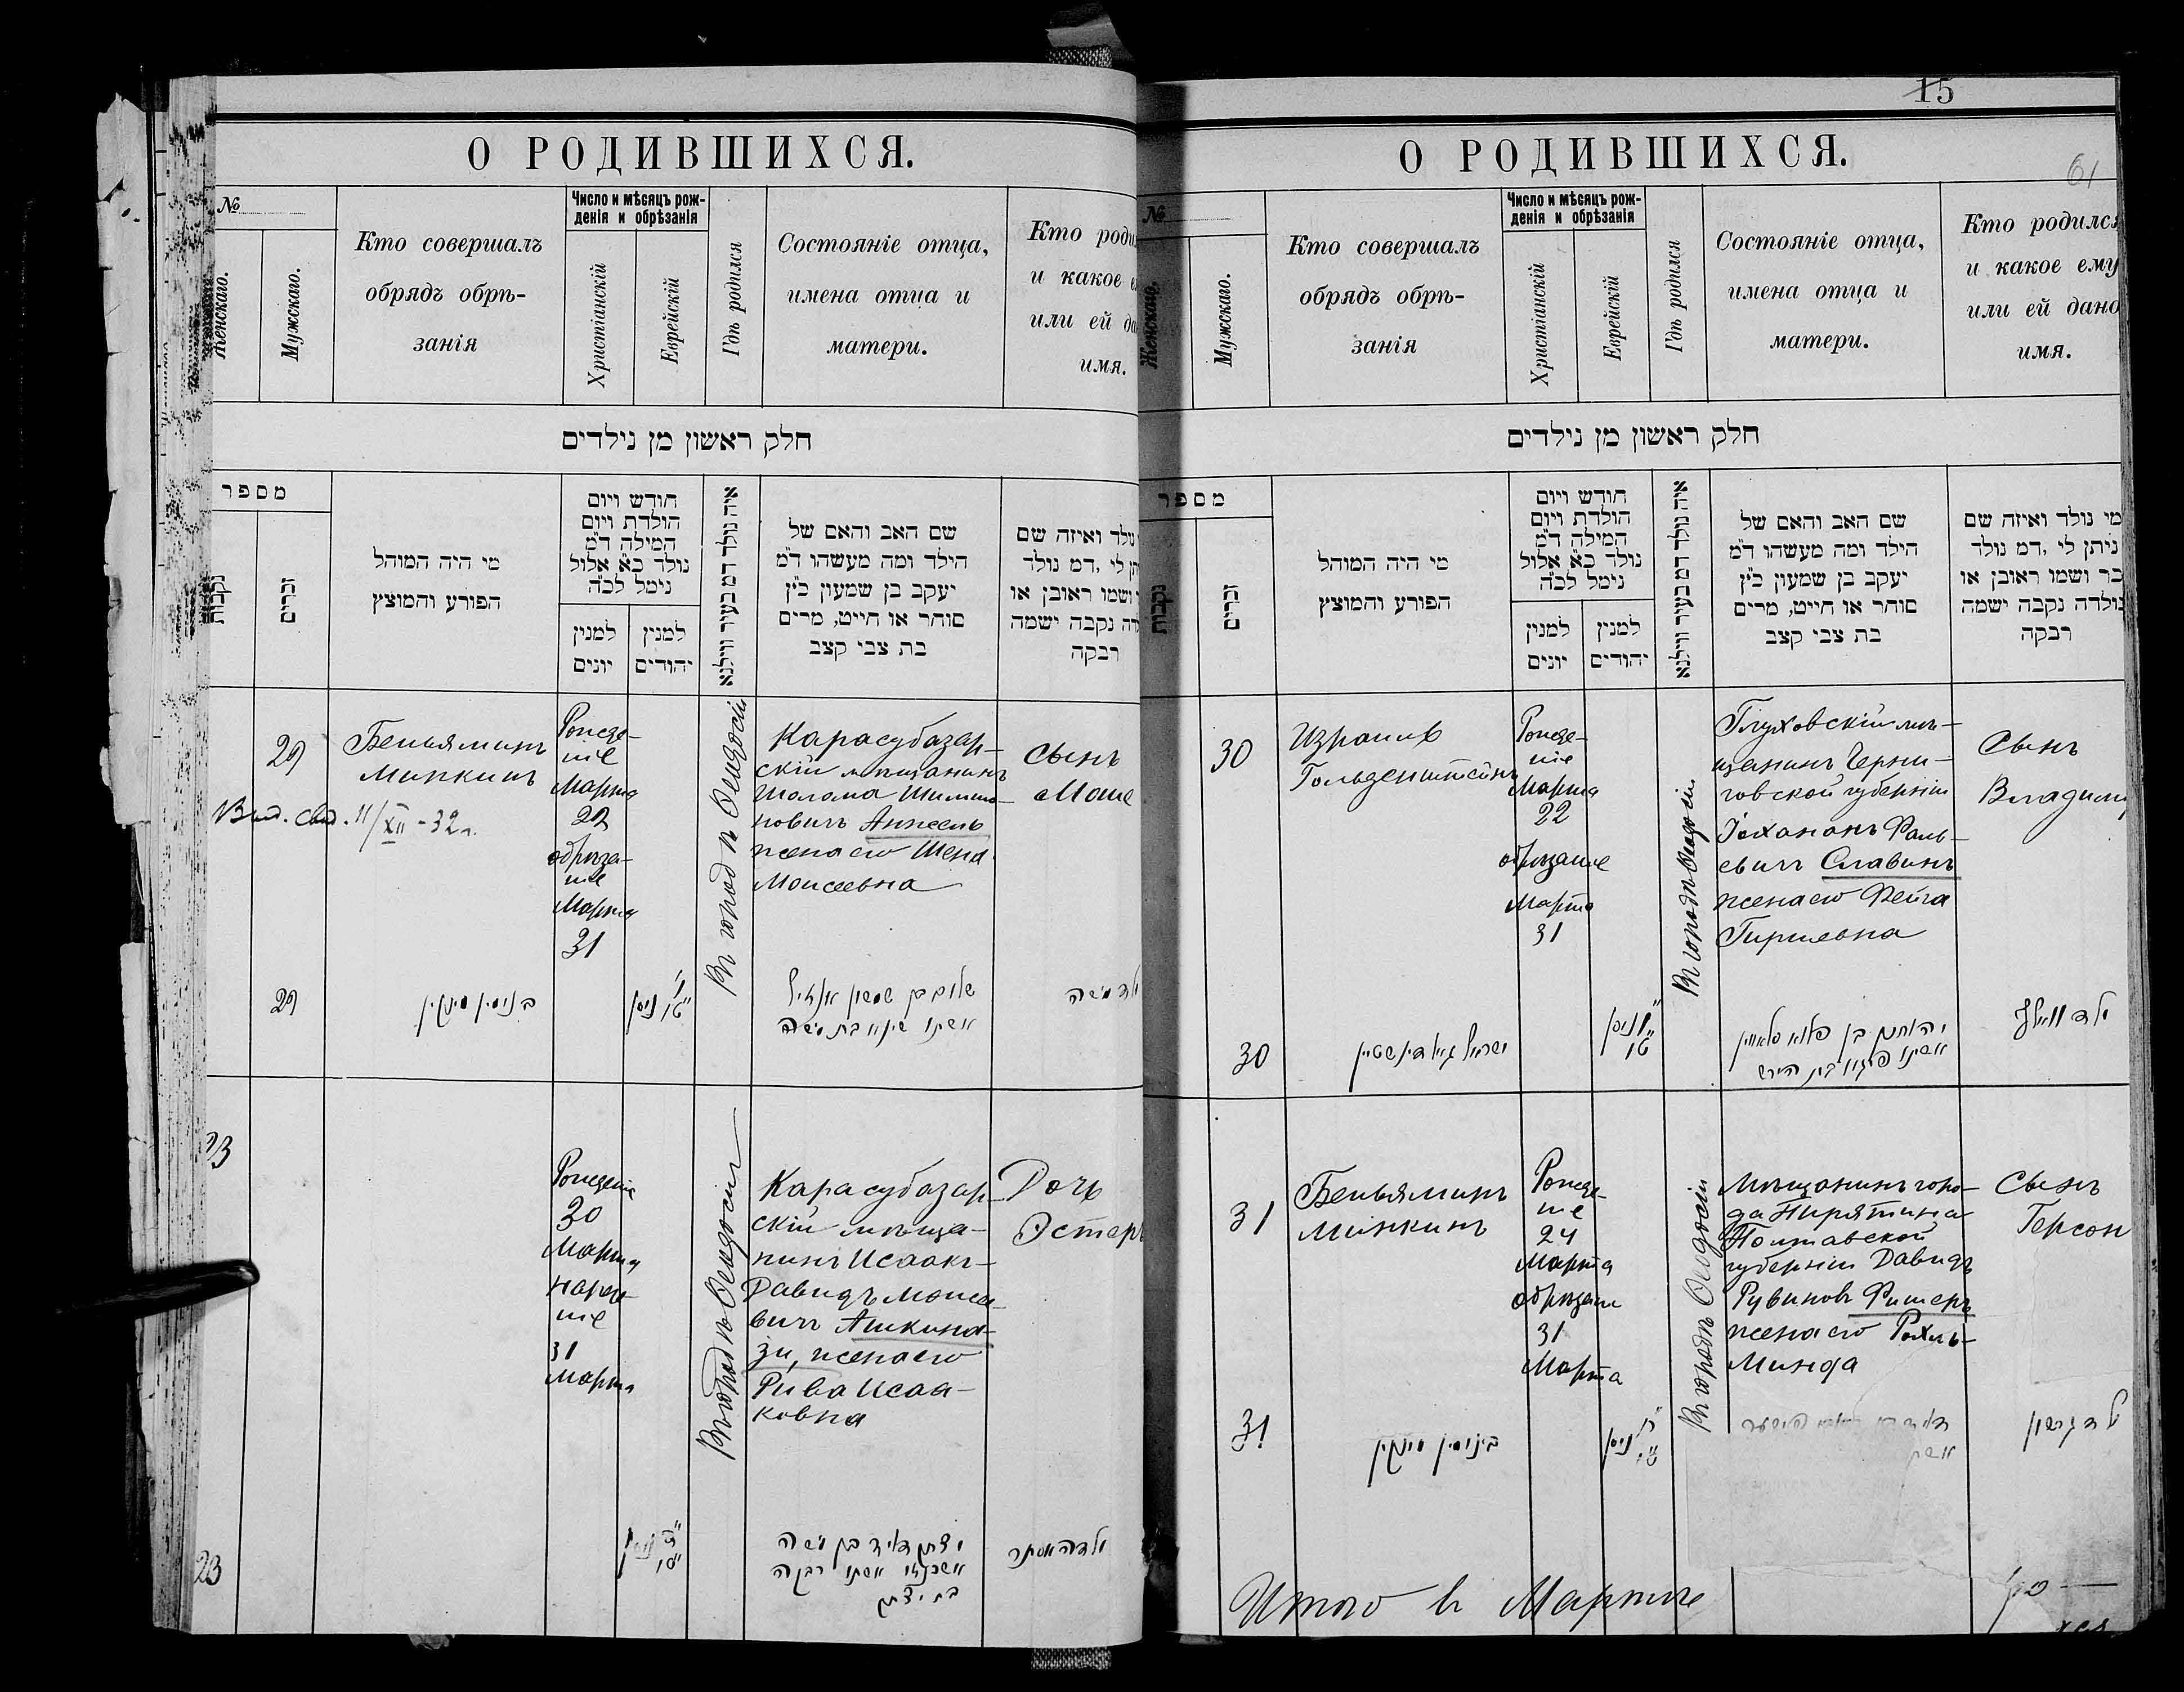 О РОДИВШИХСЯ.
№
Женскаго.
Мужскаго.
Кто совершалъ
обрядъ обрѣ-
занія
Число и мѣсяцъ рож-
денія и обрѣзанія
Христіанскій
Еврейскій
Гдѣ родился
Состояніе отца,
имена отца и
матери.
Кто роди
и какое е
или ей да
имя.
חלק ראשון מן נילדים
מספר
נקבות
זכרים
מי היה המוהל
הפורע והמוצץ
חודש ויום
הולדת ויום
המילה ד״מ
נולד כ״א אלול
נימל לכ״ה
למנין
יונים
למנין
יהודים
איה נולד דמ בעיר ווילנא
שם האב והאם של
הילד ומה מעשהו ד״מ
יעקב בן שמעון כ״ץ
סוחר או חייט, מרים
בת צבי קצב
נולד ואיזה שם
תן לי ,דמ נולד
ושמו ראובן או
דה נקבה ישמה
רבקה
29
Беньяминъ
Минкинъ
Выд. свид. 11/XII - 32 г.
Рожде-
ніе
Марта
22
обрѣза-
ніе
Марта
31
Въ городѣ Ѳеодосіи
Карасубазар-
скій мѣщанинъ
Шолома Шимшо-
новичъ Анжель
жена его Шена
Моисеевна
Сынъ
Моше
29
בנימין מינקין
ניסן
שלום בן שמשון אנזיל
אשתו שינא בת משה
ילד משה
23
Рожденіе
30
Марта
нарече-
ніе
31
Марта
Въ городѣ Ѳеодосіи
Карасубазар-
скій мѣща-
нинъ Исаакъ-
Давидъ Моисе-
вичъ Ашкина-
зи, жена его
Рива Исаа-
ковна
Дочь
Эстеръ
23
ניסן
יצחק דויד בן משה
אשכנזי אשתו רבקה
בת יצחק
ילדה אסתר
15
61
О РОДИВШИХСЯ.
№
Женскаго.
Мужскаго.
Кто совершалъ
обрядъ обрѣ-
занія
Число и мѣсяцъ рож-
денія и обрѣзанія
Христіанскій
Еврейскій
Гдѣ родился
Состояніе отца,
имена отца и
матери.
Кто родился
и какое ему
или ей дано
имя.
חלק ראשון מן נילדים
מספר
נקבות
זכרים
מי היה המוהל
הפורע והמוצץ
חודש ויום
הולדת ויום
המילה ד״מ
נולד כ״א אלול
נימל לכ״ה
למנין
יונים
למנין
יהודים
איה נולד דמ בעיר ווילנא
שם האב והאם של
הילד ומה מעשהו ד״מ
יעקב בן שמעון כ״ץ
סוחר או חייט, מרים
בת צבי קצב
מי נולד ואיזה שם
ניתן לי ,דמ נולד
כר ושמו ראובן או
נולדה נקבה ישמה
רבקה
30
Израиль
Гольденштейнъ
Рожде-
ніе
Марта
22
обрѣзаніе
Марта
31
Въ городѣ Ѳеодосіи
Глуховскій мѣ-
щанинъ Черни-
говской губерніи
Іохананъ Фаль-
евичъ Славинъ
жена его Фейга
Гиршевна
Сынъ
Владимі
30
ישראל גאלדינשטיין
ניסן
יהוחנן בן פלא סלאווין
אשתו פיגא בת הירש
ילד
31
Беньяминъ
Минкинъ
Рожде-
ніе
24
Марта
обрѣзаніе
31
Марта
Въ городѣ Ѳеодосіи
Мѣщанинъ горо-
да Пирятина
Полтавской
губерніи Давидъ
Рувиновъ Фишеръ
жена его Рохль-
Минда
Сынъ
Герсон
31
בינימין מינקין
ניסן
דויד בן ראובן פישער
ילד גרשון
Итого въ Мартѣ